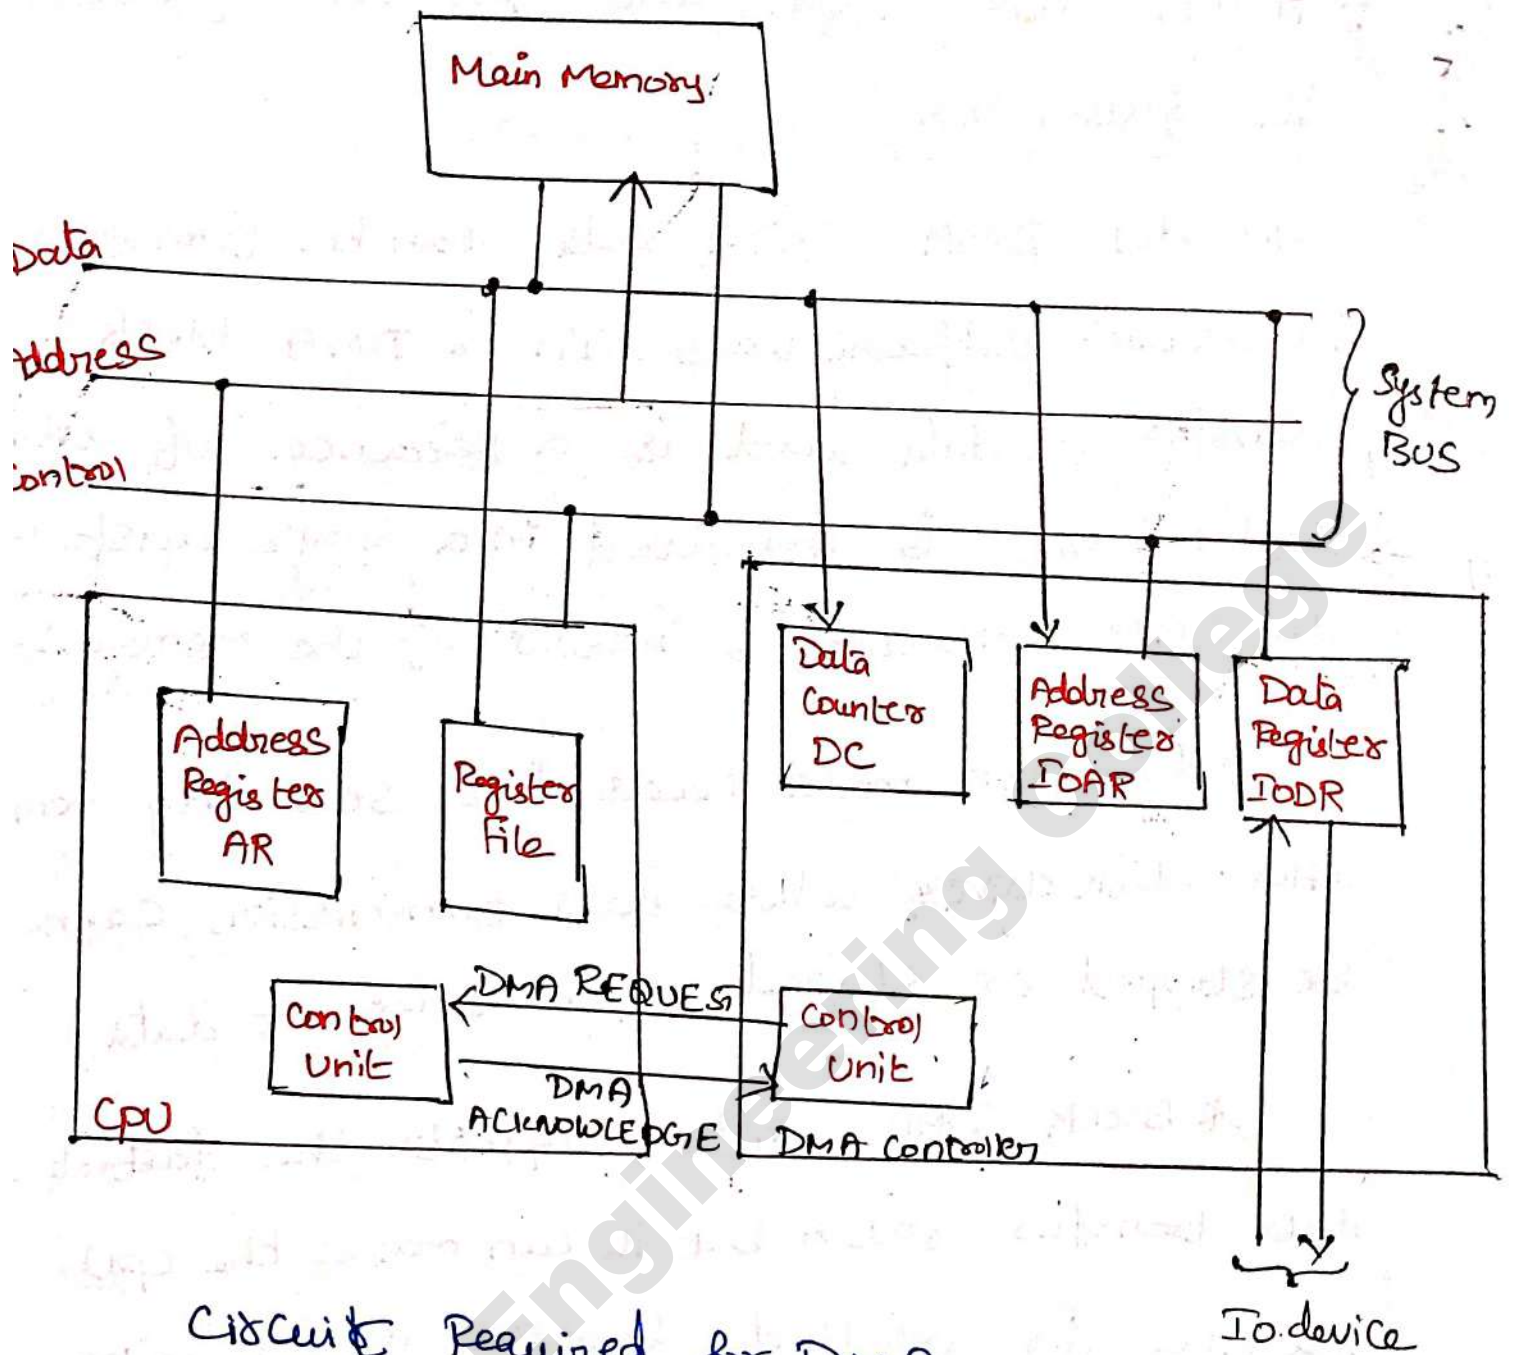 Main Memory
Data
ddress
ontrol
System
BUS
Address
Register
AR
Register
File
Data
Counter
DC
Address
Register
IOAR
Data
Register
IODR
Control
Unit
DMA REQUEST
DMA
ACKNOWLEDGE
Control
Unit
CPU
DMA Controller
Io device
Circuit Required for DMA
Engineering College